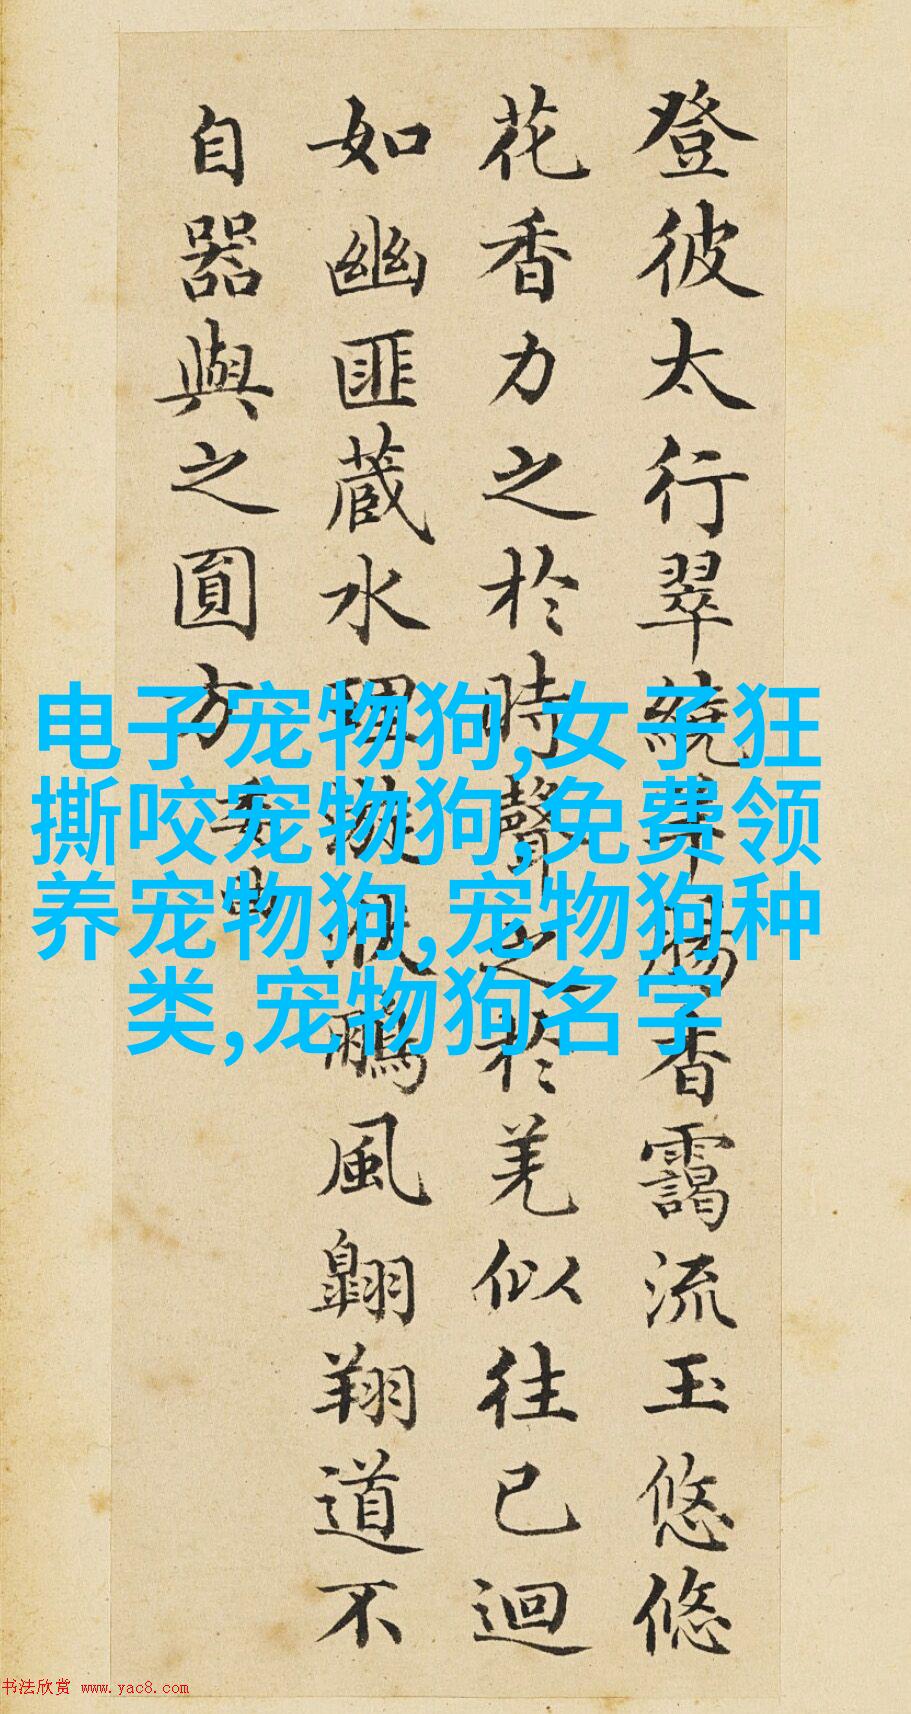 登彼太行翠繞羊腸杳靄流玉悠悠
花香力之於時聲之於羌似往已迴
如幽匪蔵水理漩洑鵬風翺翔道不
自器與之圓方
委曲
电子宠物狗,女子狂
撕咬宠物狗,免费领
养宠物狗,宠物狗种
类,宠物狗名字
书法欣赏 www.yac8.com